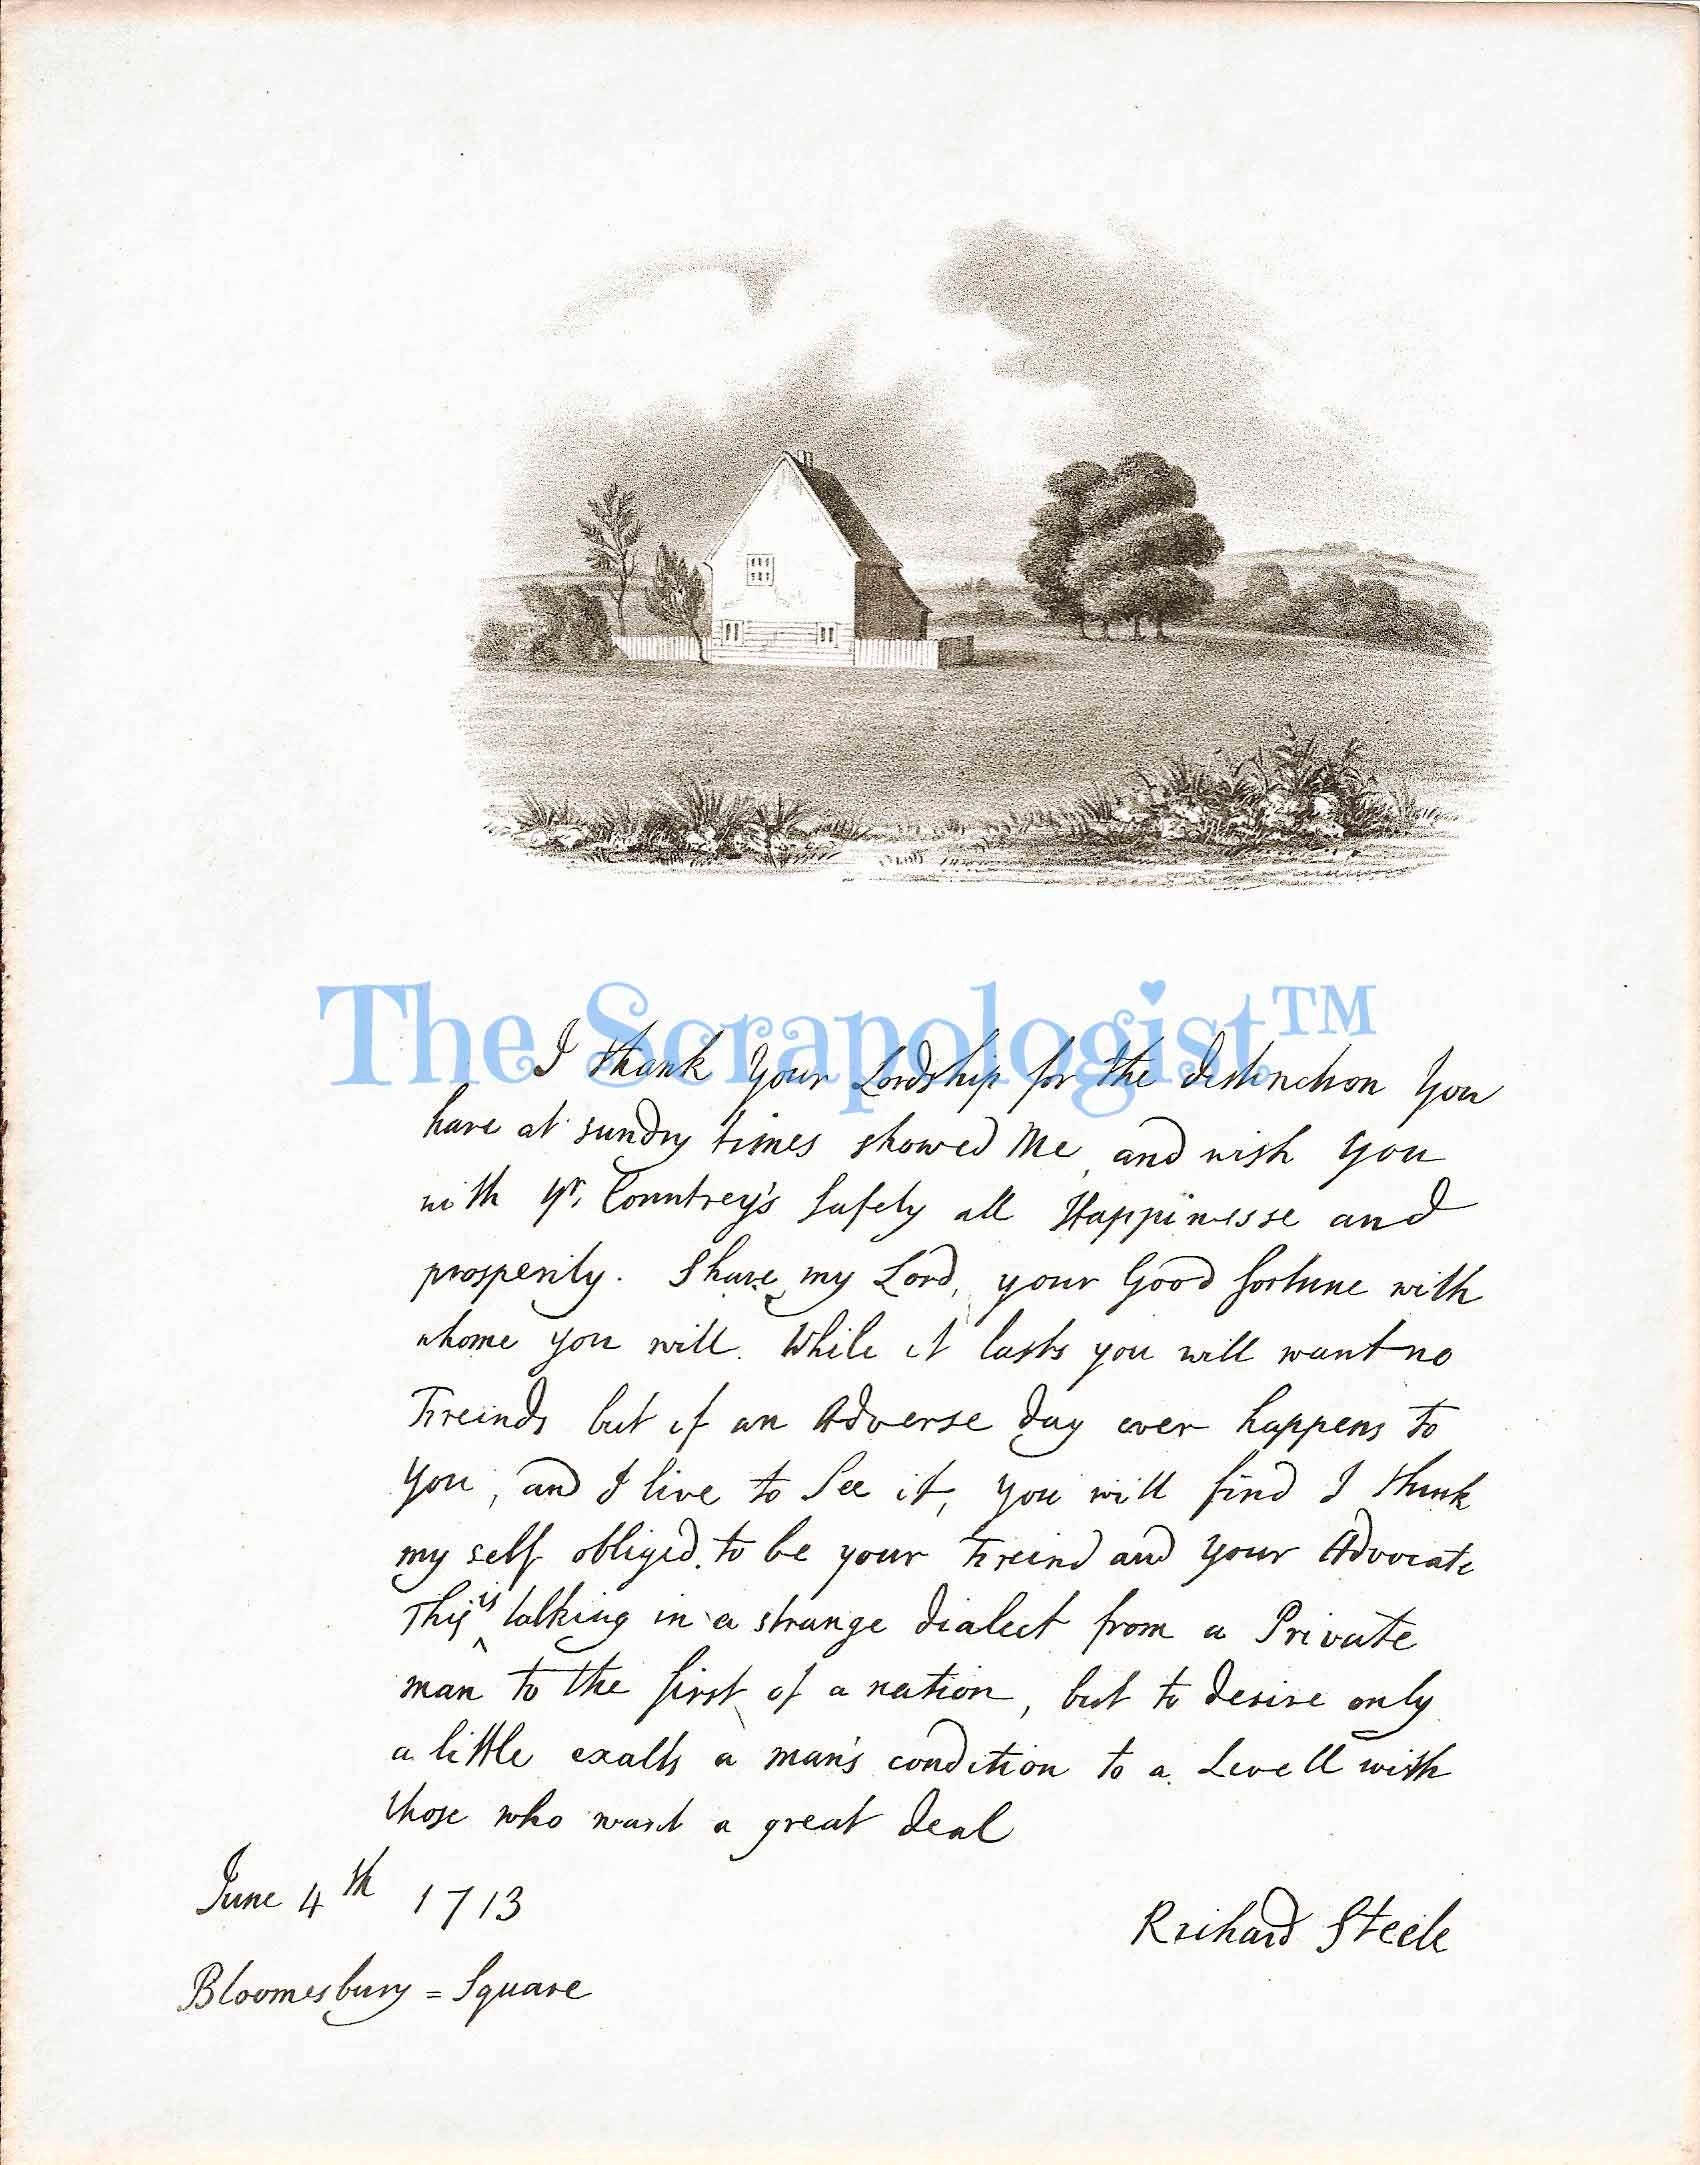 The Scrapologist™
I thank Your Lordship for the distinction You
have at sundry times showed Me, and wish You
with yr. Countrey's Safety all Happinesse and
prosperity. Share, my Lord, your Good fortune with
whome you will. While it lasts you will want no
Freinds but if an Adverse day ever happens to
You, and I live to See it, you will find I think
my self obliged to be your Freind and your Advocate
This is talking in a strange dialect from a Private
man to the first of a nation, but to desire only
a little exalts a man's condition to a Levell with
those who want a great deal
June 4th 1713
Richard Steele
Bloomesbury = Square